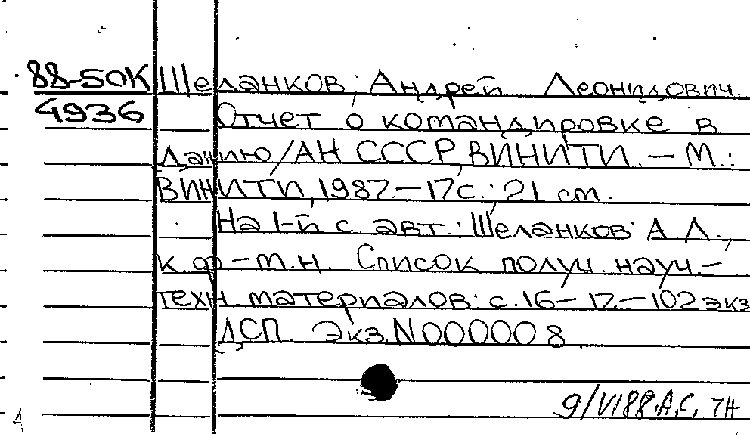 88-50К Шеланков, Андрей Леонидович.
4936 Отчет о командировке в
Данию/АН СССР, ВИНИТИ. — М.:
ВИНИТИ, 1987.—17с.; 21 см.
На 1-й с авт.: Шеланков А.Л.,
к.ф-м.н. Список получ. науч.-
техн. материалов: с. 16-17.—102экз
ДСП. Экз. N000008
9/VI88.А.С. 7Н